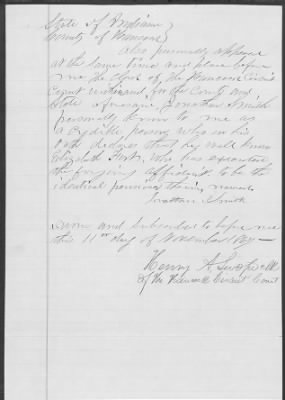 State of Indiana
County of Hancock
Also personally appeared
at the same time and place before
me the Clerk of the Hancock Circuit
Court within and for the County and
State aforesaid, Jonathan Smith
personally known to me as
a Credible person, who on his
oath declares that he well knows
Elizabeth who has executed
the forgoing affidavit to be the
identical person therein named
Jonathan Smith
Sworn and subscribed to before me
this 11th day of November
Henry A. Swope Clk
of the Hancock Circuit Court